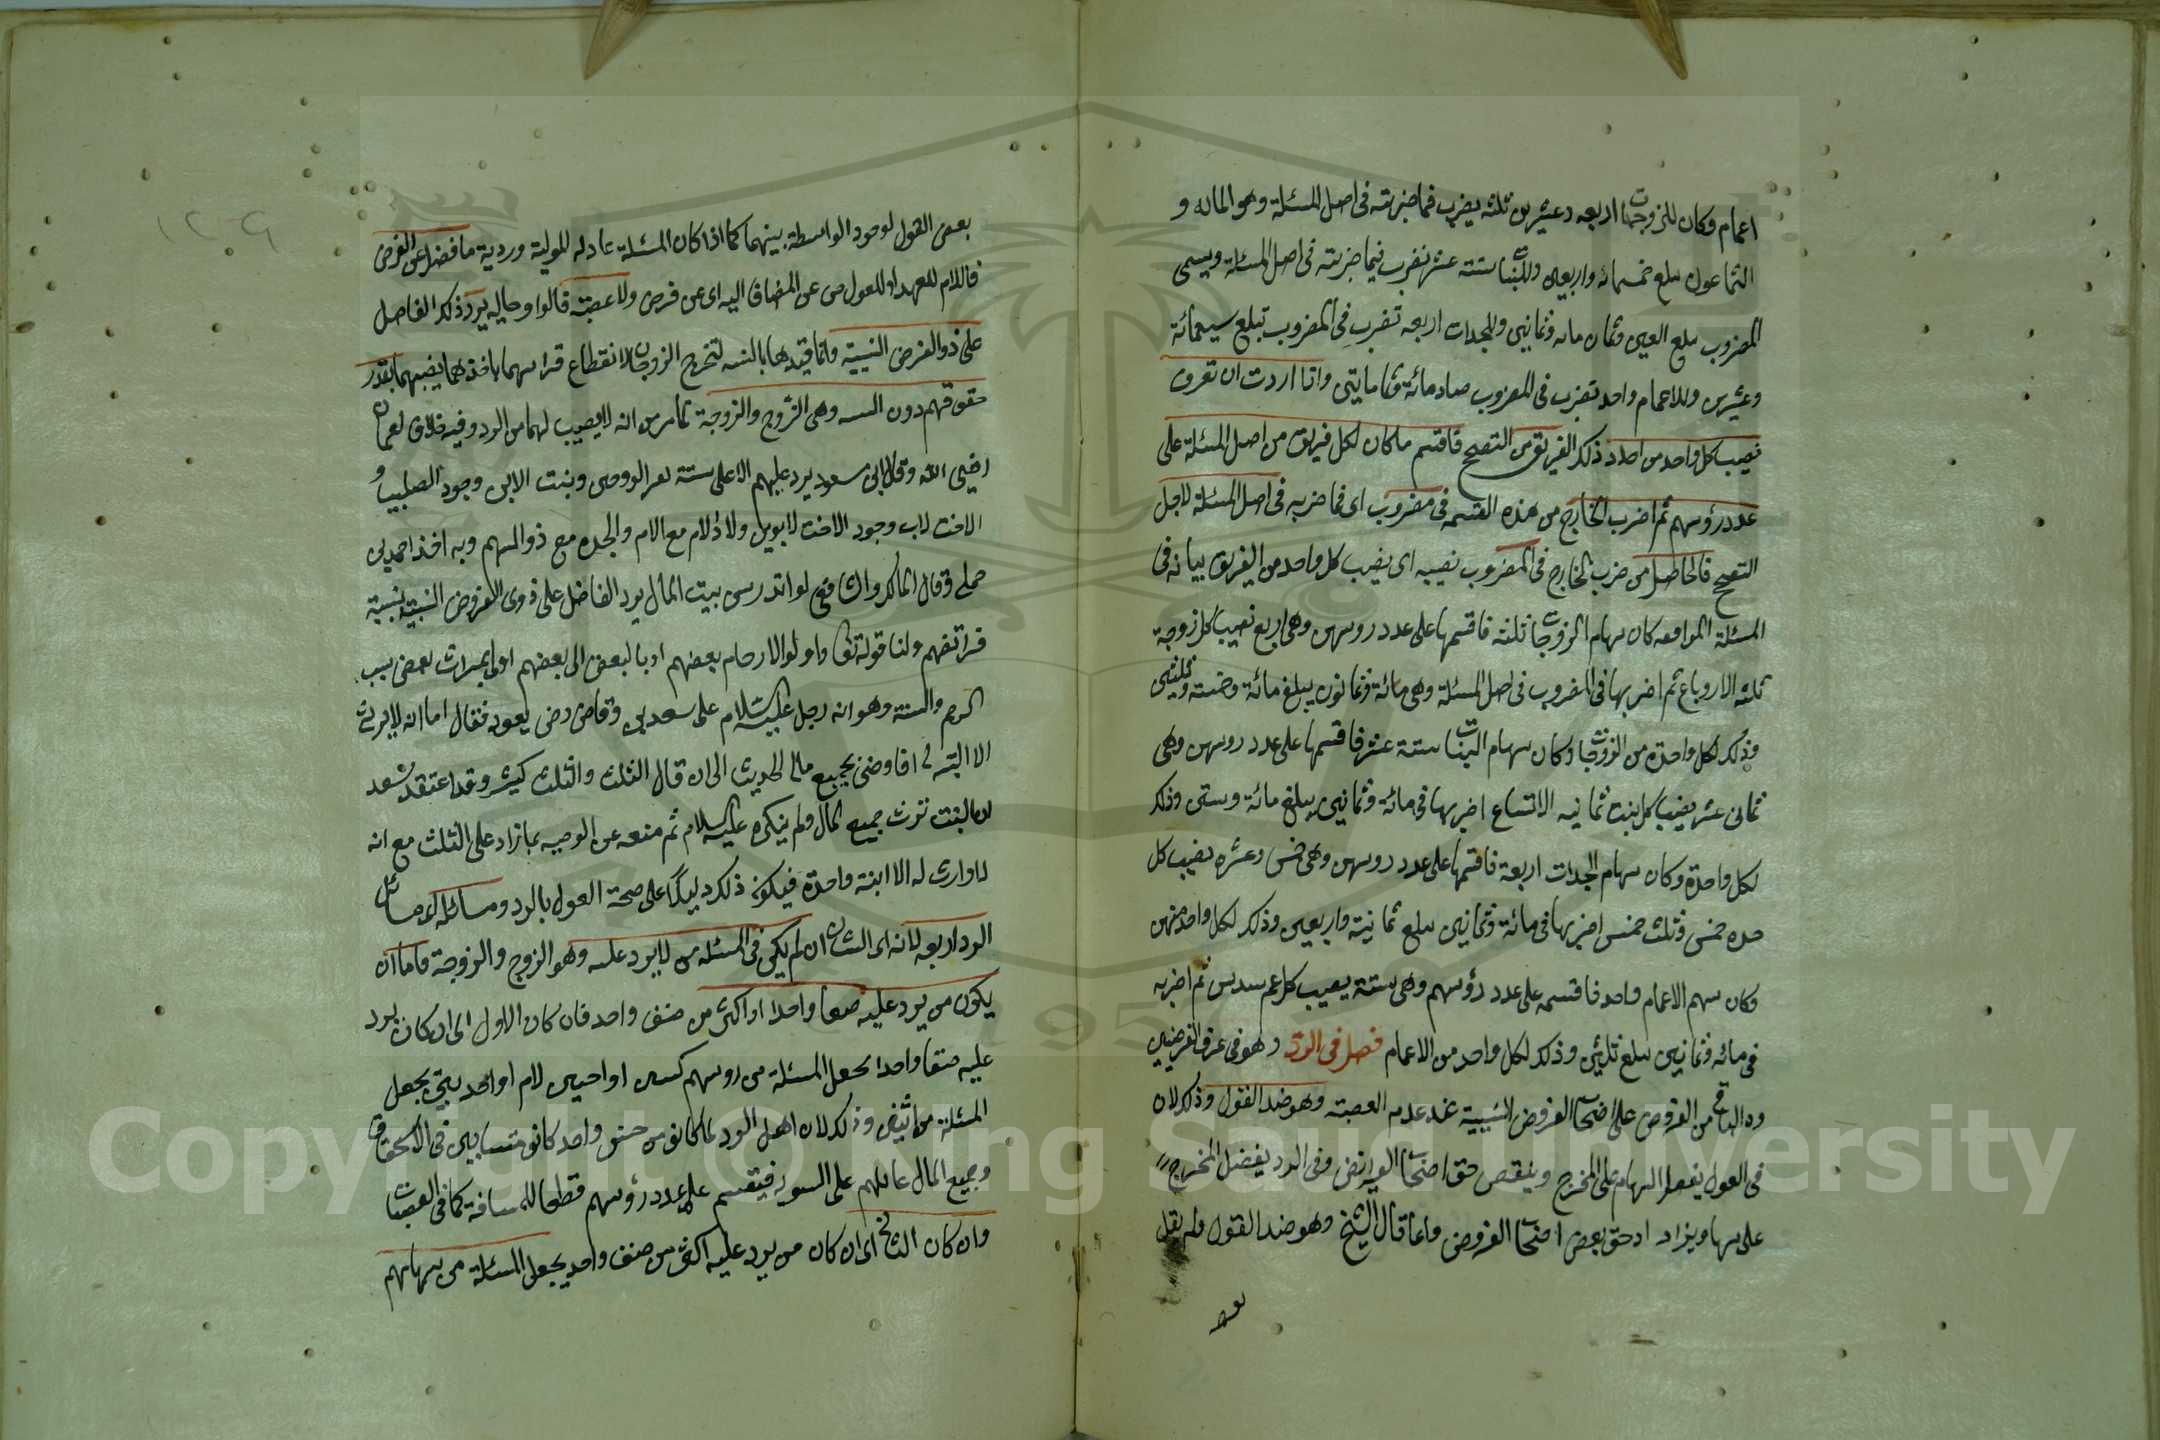 اعمام وكان للزوجات اربعه وعشرين ثلثه يضرب فما ضربته فى اصل المسئلة وهو الماله و
الثماعون يبلغ خمسمائه واربعين وللبنات ستة عشر تضرب فيما ضربته فى اصل المسئلة ويسمى
المضروب يبلغ الفين وثمان مائه وثمانين وللجدات اربعه تضرب فى المضروب تبلغ سبعمائة
وعشرين وللاعمام واحد تضرب فى المضروب صار مائة وثمانين واذا اردت ان تعرف
نصيب كل واحد من احاد ذلك الفريق من التصحح فاقسم ما كان لكل فريق من اصل المسئلة على
عدد رؤسهم ثم اضرب الخارج من هذه القسمه فى مضروب اى فما ضربه فى اصل المسئلة لاجل
التصحح فالحاصل من ضرب الخارج فى المضروب نصيبه اى نصيب كل واحد من الفريق بيانه فى
المسئلة كان سهام الزوجات ثلثه فاقسمها على عدد روسهن وهى اربع نصيب كل زوجة
ثلثه الارباع ثم اضربها فى المضروب فى اصل المسئلة وهى مائة وثمانون يبلغ مائة وخمسة وثلثين
وذلك لكل واحدة من الزوجات وكان سهام البنات ستة عشر فاقسمها على عدد روسهن وهى
ثمانى عشر نصيب كل بنت ثمانيه الاتساع اضربها فى مائة وثمانين يبلغ مائة وستين وذلك
لكل واحدة وكان سهام الجدات اربعة فاقسمها على عدد روسهن وهى خمس وعشره نصيب كل
جده خمس وثلث خمس اضربها فى مائة وثمانين يبلغ ثمانية واربعين وذلك لكل واحد منهن
وكان سهم الاعمام واحد فاقسمه على عدد رؤسهم وهى ستة نصيب كل عم سدس ثم اضربه
فى مائه وثمانين يبلغ ثلثين وذلك لكل واحد من الاعمام فصل فى الرد وهو فى عرف الفرضيين
رد الباقى من الفروض على اصحاب الفروض النسبية عند عدم العصبة وهو ضد القول وذلك لان
فى العول يفضل السهام على المخرج وينقص حق اصحاب الفرائض وفى الرد يفضل المخرج
على سها ويزاد حق بعض اصحاب الفروض وانما قال الشيخ وهو ضد القول ولم يقل
بعض
١٢٠٩
بعض القول لوجود الواسطة بينهما كما اذا كان المسئلة عادله للمولية وردية ما فضل عن الفرض
فاللام للعهد او للعول من عن المضاف اليه اى عن فرض ولا عصبته قالوا وحاليه يرد ذلك الفاصل
على ذو الفرض النسبية وانما قيدها بالنسبه لتخرج الزوجان لانقطاع قرابتهما باخذهما نصيبهما بقدر
حقوقهم دون السببيه وهى الزوج والزوجة ثامرس انه لا يصيب لهما من الرد وفيه خلاف لعثمان
رضى الله وقالا ابن مسعود يرد عليهم الا على ستة نفر الزوجين وبنت الابن وجود الصلبيات و
الاخت لاب وجود الاخت لابوين ولاد لام مع الام والجده مع ذو السهم وبه اخذ احمد بن
حملى وقال المالك والشافعى لو اندرس بيت المال يرد الفاضل على ذوى الفروض النسبية بنسبة
فرائضهم ولنا قوله تعالى واولو الارحام بعضهم اوبا لبعض الى بعضهم اولى بميراث بعض بسبب
الرحم والسنة وهو انه دخل عليه السلام على سعد بن وقاص رضى يعوده فقال اما انه لا يرثنى
الا ابنتى افاوصى بجميع مالى الحديث الى ان قال الثلث والثلث كثير وقد اعتقد سعد
ان البنت ترث جميع المال ولم ينكره عليه السلام ثم منعه عن الوصيه بما زاد على الثلث مع انه
لا وارث له الا ابنة واحدة فيكون ذلك دليلا على صحة القول بالرد ومسائله اى مسائل
الرد اربعه لانه اى الشان ان لم يكن فى المسئله من لا يرد عليه وهو الزوج والزوجة فاما ان
يكون من يرد عليه صنفا واحدا او اكثر من صنف واحد فان كان الاول اى ان كان يرد
عليه صنفا واحدا يجعل المسئلة من روسهم كبنتين او اختين لام او لاحد بنتى يجعل
المسئلة من اثنين وذلك لان اهل الرد لما كانو من جنس واحد كانو متساوين فى الاستحقاق
وجميع المال عاملهم على السويه فيقتسم على عدد رؤسهم قطعا للمسافة كما فى العصبات
وان كان الثانى اى ان كان من يرد عليه اكثر من صنف واحد يجعل المسئلة من سهامهم
Copyright © King Saud University
1957